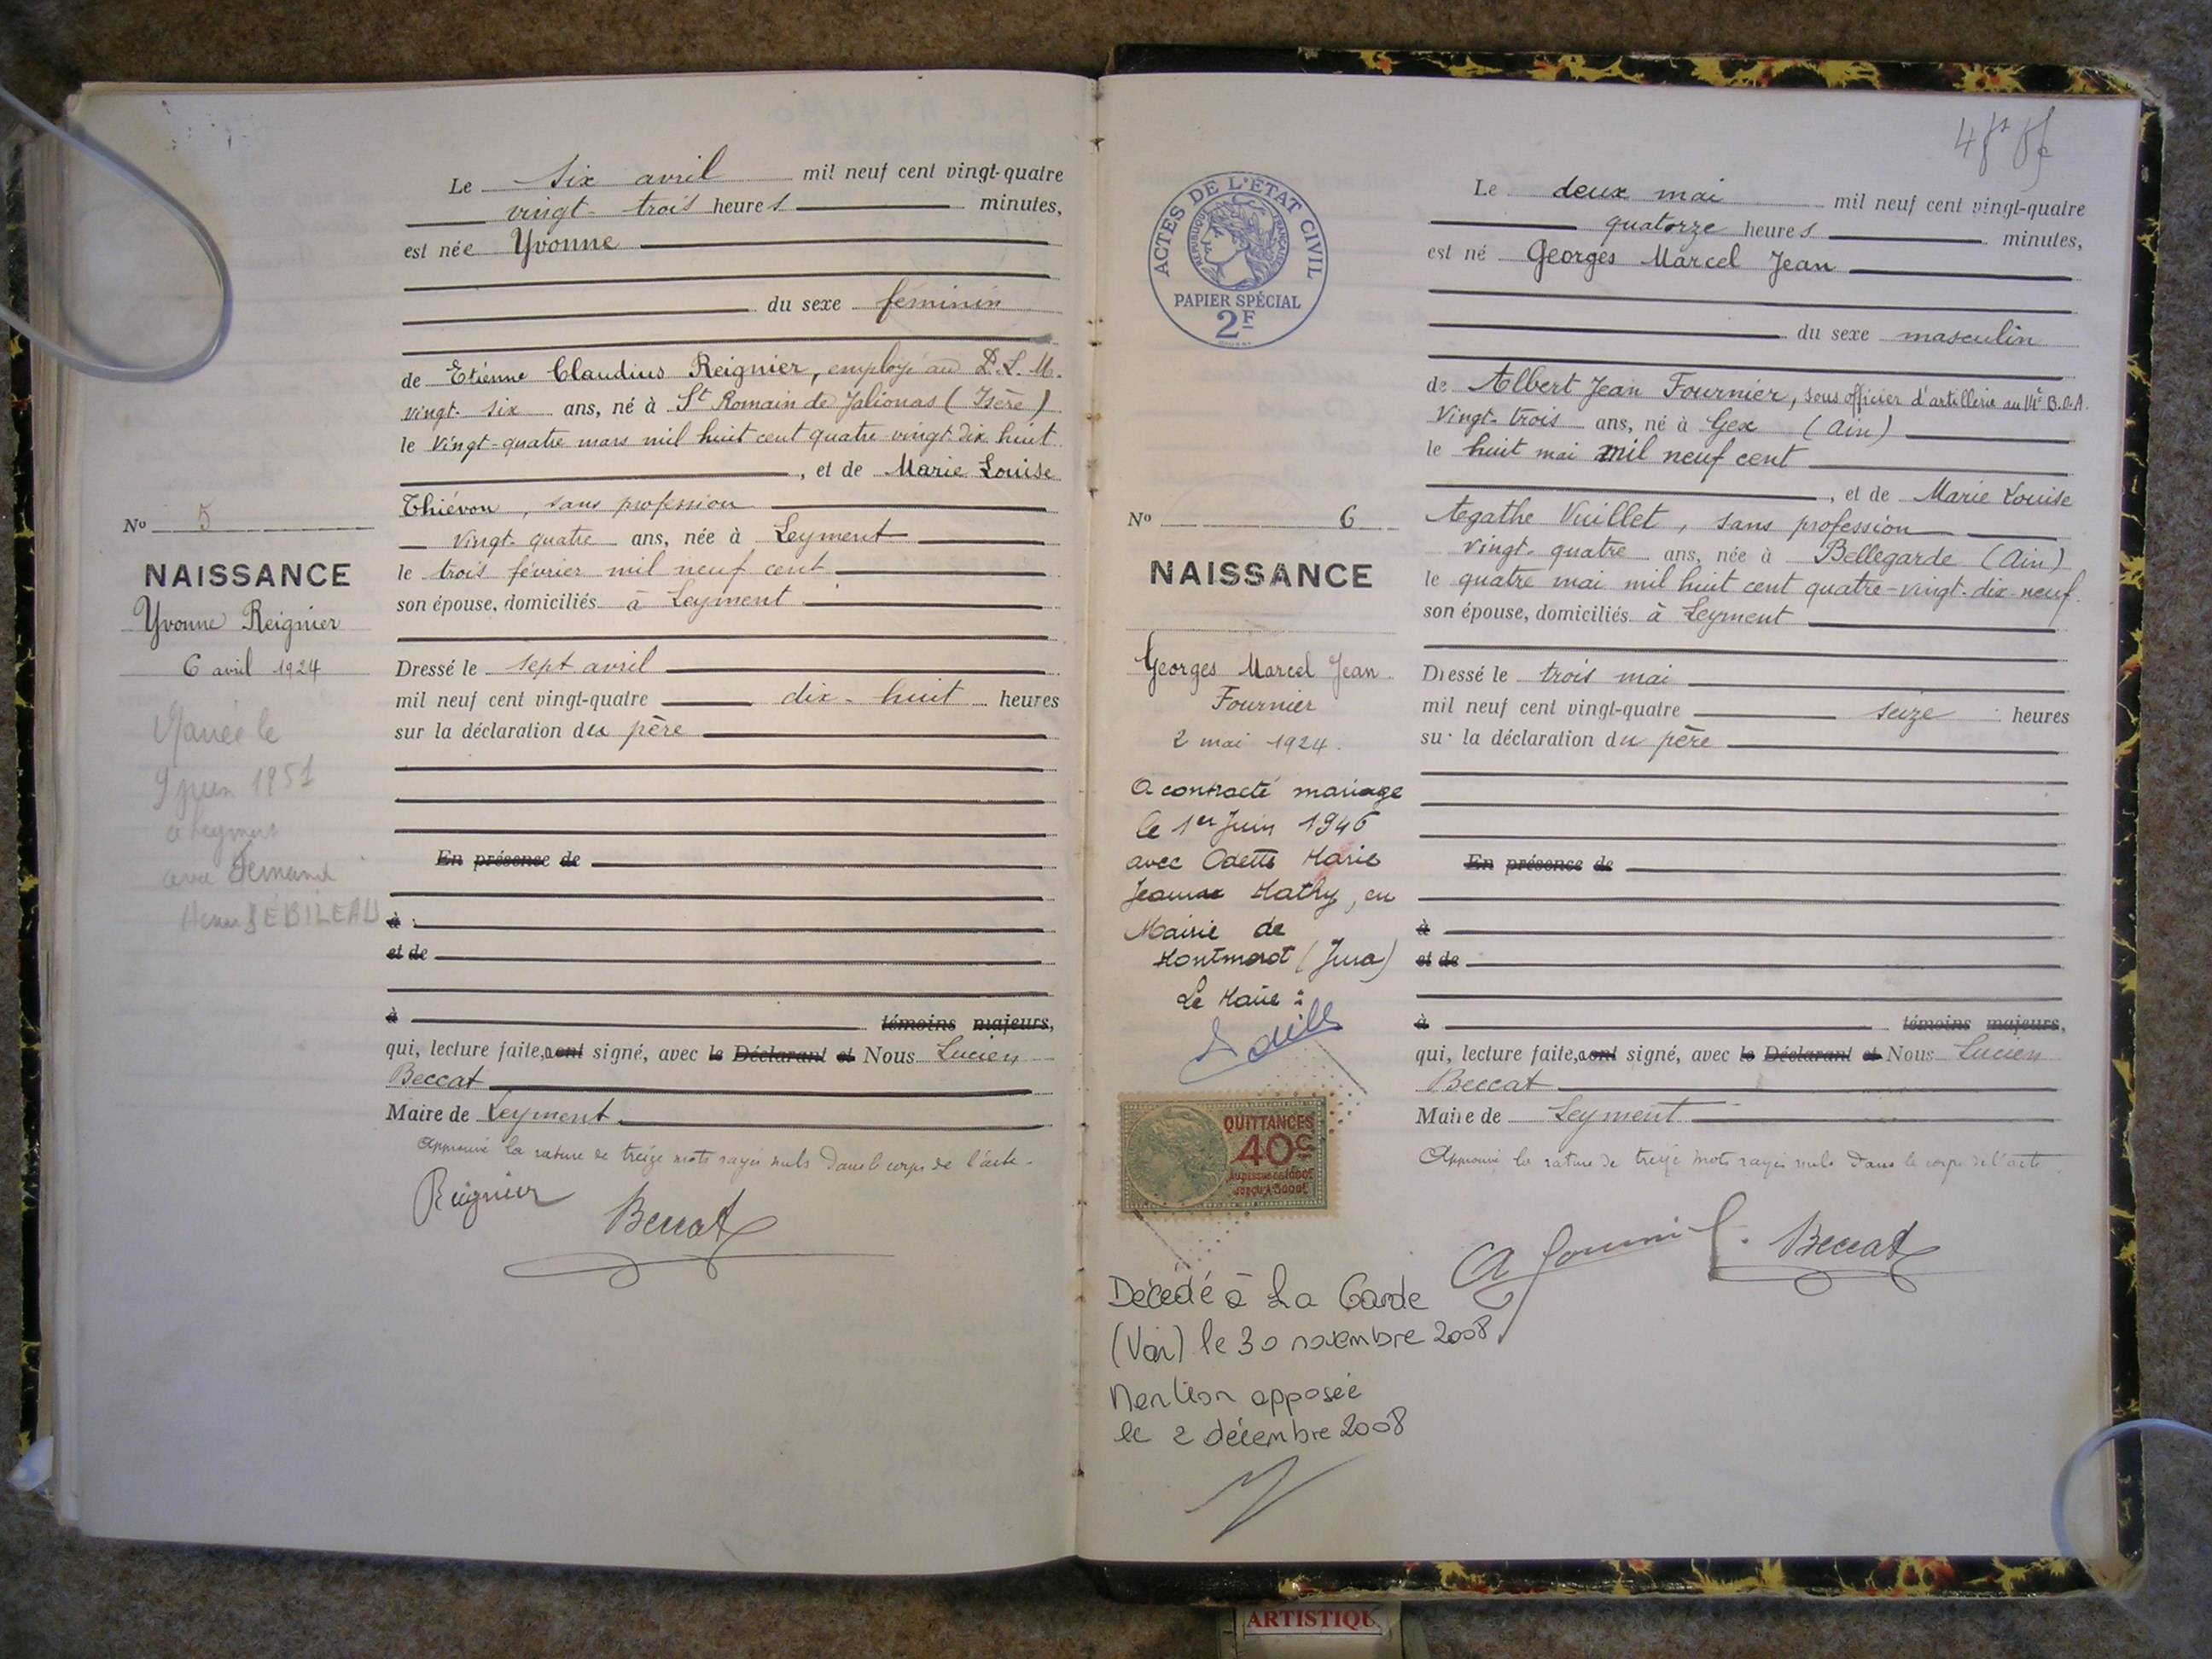 Le six avril mil neuf cent vingt-quatre
vingt-trois heures minutes,
est née Yvonne
du sexe féminin
de Etienne Claudius Reignier, employé au P.L.M.
vingt-six ans, né à St Romain de Jalionas (Isère)
le vingt-quatre mars mil huit cent quatre vingt dix huit
, et de Marie Louise
Thiévon, sans profession
vingt-quatre ans, née à Leyment
le trois février mil neuf cent
son épouse, domiciliés à Leyment
Dressé le sept avril
mil neuf cent vingt-quatre dix-huit heures
sur la déclaration du père
En présence de
à
et de
à témoins majeurs,
qui, lecture faite, a ont signé, avec le Déclarant et Nous Lucien
Beccat
Maire de Leyment
Approuvé la rature de treize mots rayés nuls dans le corps de l'acte.
Reignier Beccat
No 5
NAISSANCE
Yvonne Reignier
6 avril 1924
Mariée le
9 juin 1951
à Leyment
avec Fernand
BÉBILEAU
ACTES DE L'ÉTAT CIVIL
RÉPUBLIQUE FRANÇAISE
PAPIER SPÉCIAL
2F
Le deux mai mil neuf cent vingt-quatre
quatorze heures minutes,
est né Georges Marcel Jean
du sexe masculin
de Albert Jean Fournier, sous officier d'artillerie au 14e B.O.A.
Vingt-trois ans, né à Gex (Ain)
le huit mai mil neuf cent
, et de Marie Louise
Agathe Vuillet, sans profession
vingt-quatre ans, née à Bellegarde (Ain)
le quatre mai mil huit cent quatre-vingt-dix-neuf
son épouse, domiciliés à Leyment
Dressé le trois mai
mil neuf cent vingt-quatre seize heures
sur la déclaration du père
En présence de
à
et de
à témoins majeurs,
qui, lecture faite, a ont signé, avec le Déclarant et Nous Lucien
Beccat
Maire de Leyment
Approuvé la rature de treize mots rayés nuls dans le corps de l'acte.
A Fournier Beccat
No 6
NAISSANCE
Georges Marcel Jean
Fournier
2 mai 1924.
A contracté mariage
le 1er Juin 1946
avec Odette Marie
Jeanne Mathy, en
Mairie de
Montmorot (Jura)
Le Maire :
QUITTANCES
40c
Décédé à La Garde
(Var) le 30 novembre 2008
Mention apposée
le 2 décembre 2008
ARTISTIQU